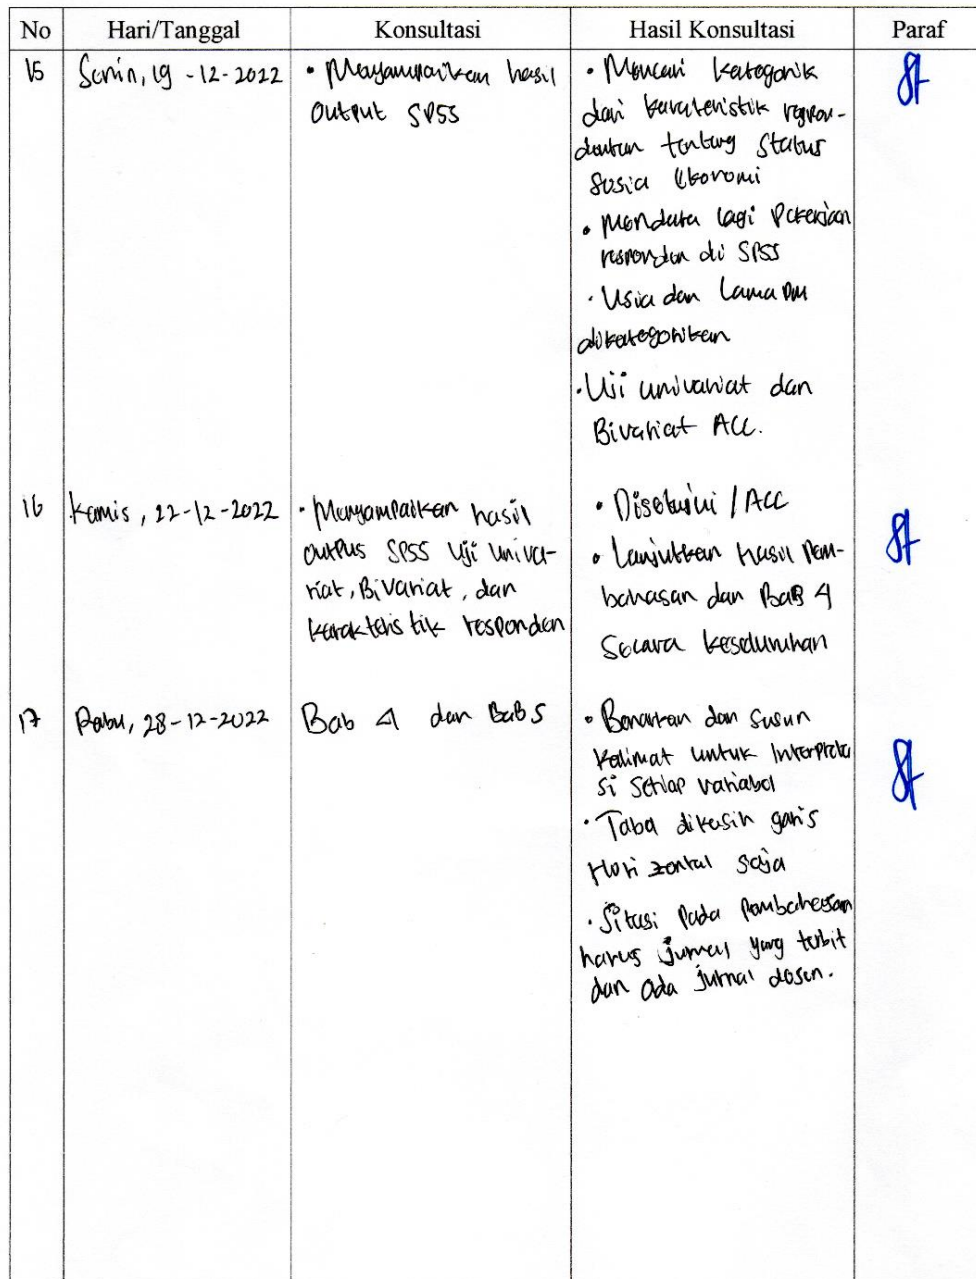 No Hari/Tanggal Konsultasi Hasil Konsultasi Paraf
15 Senin, 19 -12-2022
• Menyampaikan hasil
Output SPSS
• Mencari kategorik
dari karateristik respon-
dentan tentang Status
Sosia Ekonomi
• Mendata lagi Pekerjaan
responden di SPSS
• Usia dan Lama DM
dikategorikan
• Uji univariat dan
Bivariat ACC.
16 Kamis, 22-12-2022
• Menyampaikan hasil
outpus SPSS Uji Univa-
riat, Bivariat, dan
karakteristik responden
• Disetujui / ACC
• Lanjutkan hasil Pem-
bahasan dan BaB 4
Secara keseluruhan
17 Rabu, 28-12-2022
Bab 4 dan BaB 5
• Benarkan dan susun
kalimat untuk Interpreta
si Setiap variabel
• Tabel dikasih garis
Horizontal saja
• Sitasi Pada Pembahasan
harus jurnal yang terbit
dan ada jurnal dosen.